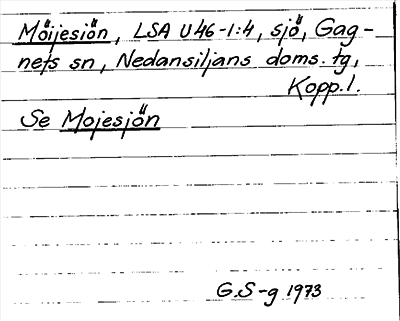 Möijesiön, LSA U46-1:4, sjö, Gag-
nefs sn, Nedansiljans doms. tg,
Kopp. l.
Se Mojesjön
G.S-g 1973